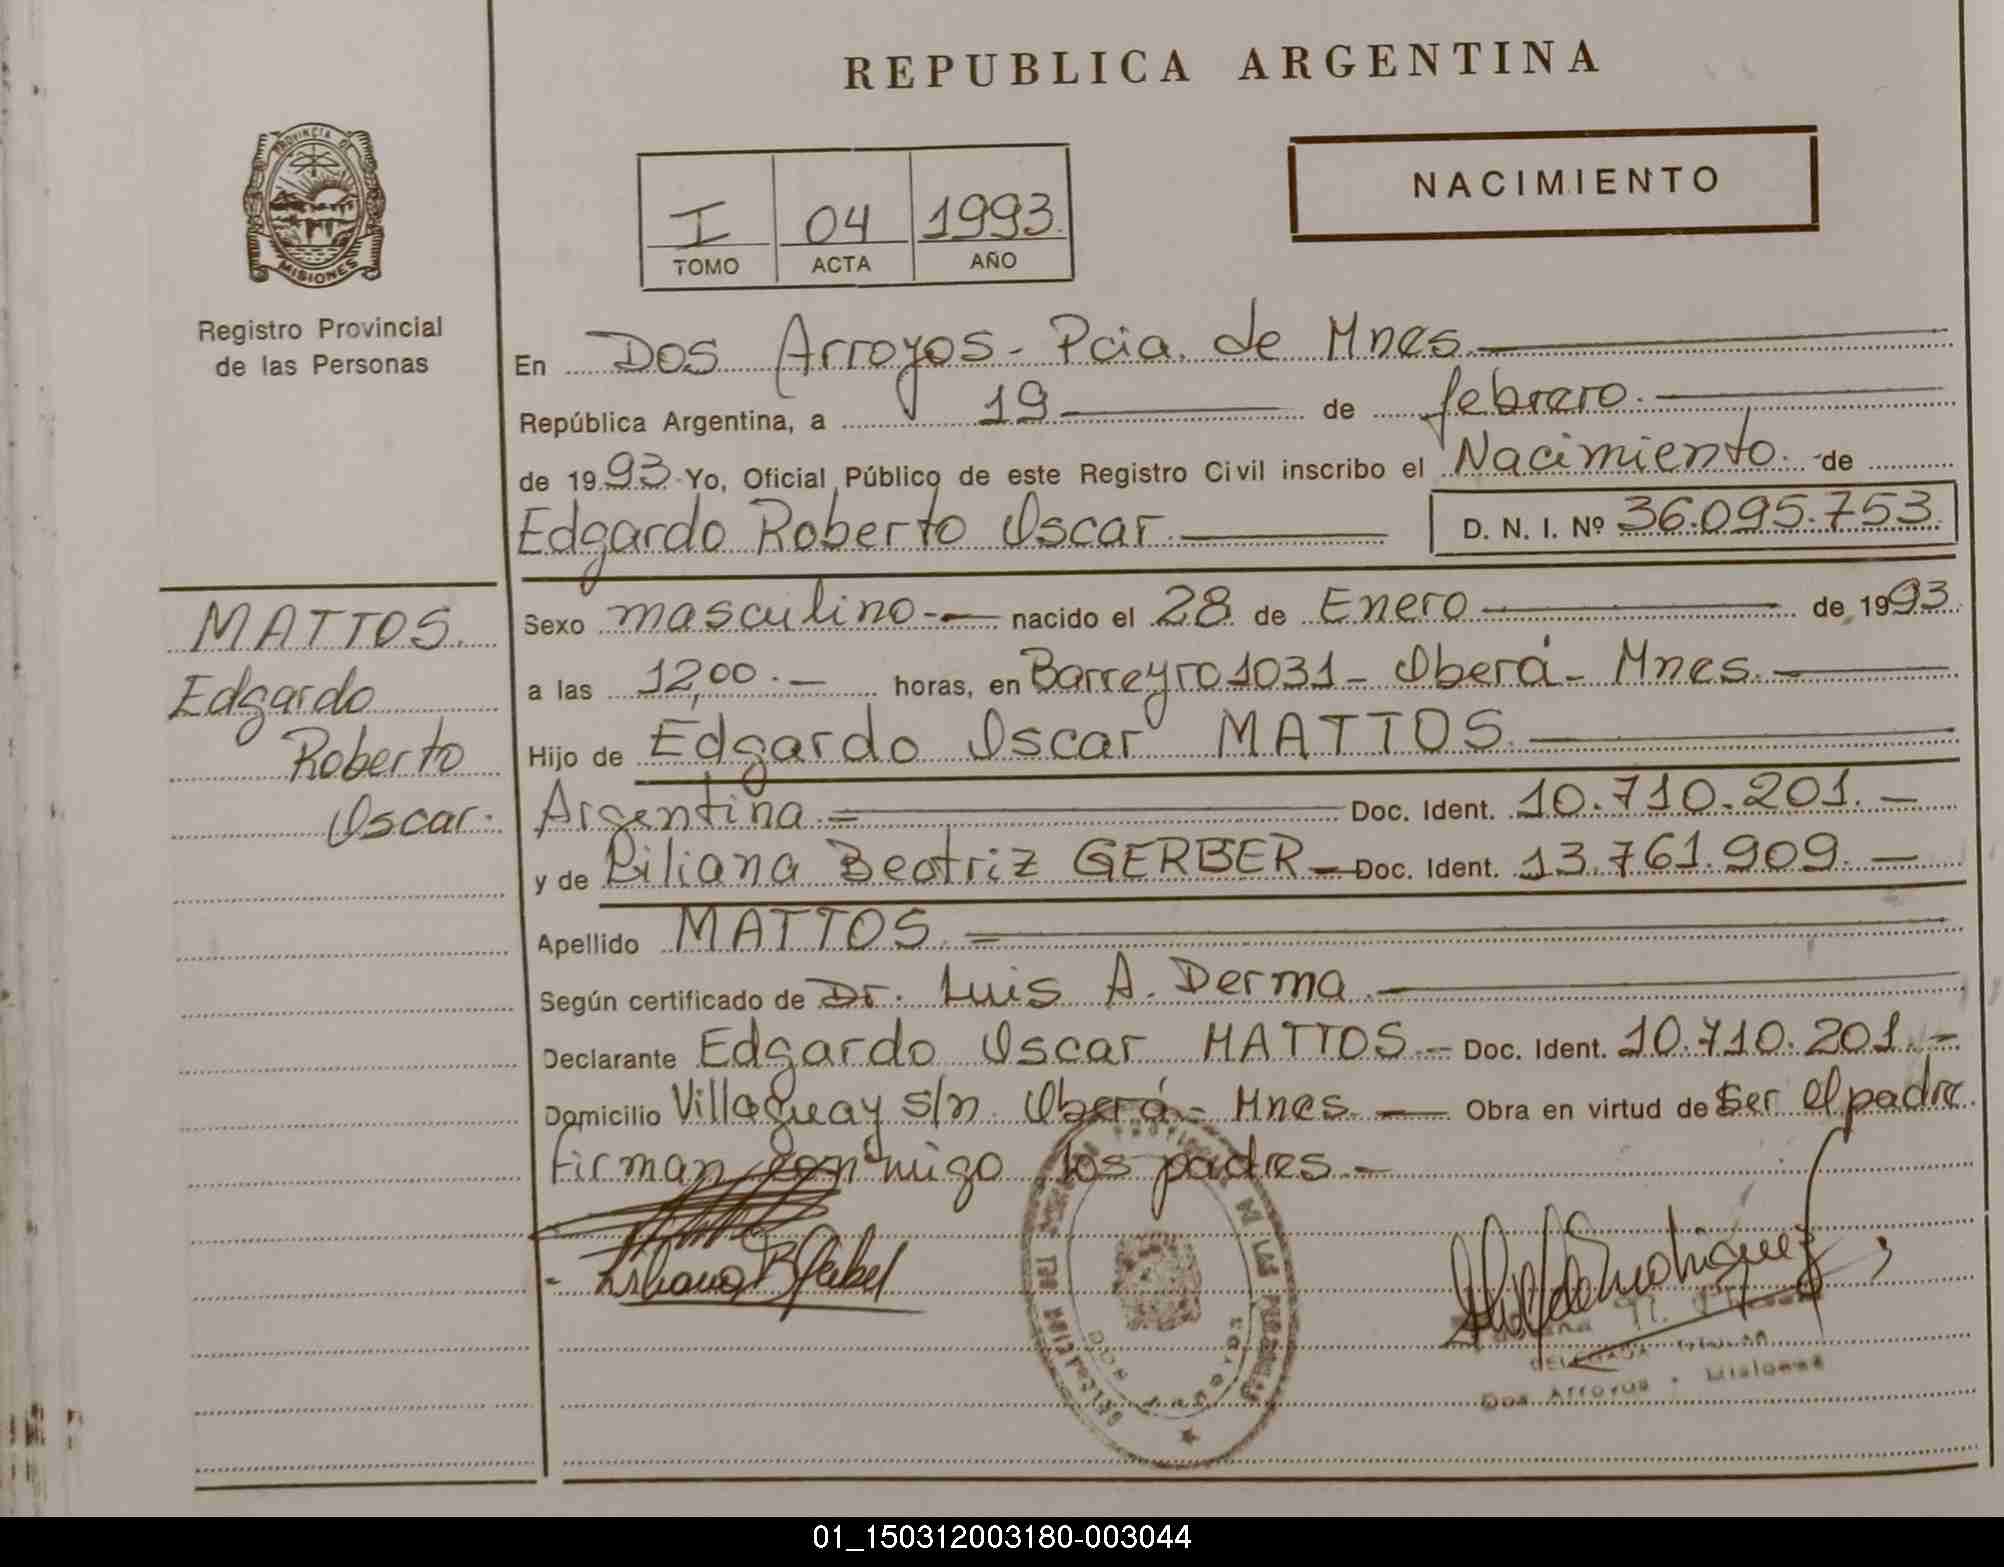 REPUBLICA ARGENTINA
PROVINCIA DE
MISIONES
Registro Provincial
de las Personas
NACIMIENTO
I 04 1993.
TOMO ACTA AÑO
En Dos Arroyos - Pcia. de Mnes.
República Argentina, a 19 de febrero.
de 1993 Yo, Oficial Público de este Registro Civil inscribo el Nacimiento. de
Edgardo Roberto Oscar. D. N. I. Nº 36.095.753.
MATTOS.
Edgardo
Roberto
Oscar.
Sexo masculino.- nacido el 28 de Enero de 1993.
a las 12,00.- horas, en Barreyro 1031 - Oberá - Mnes.
Hijo de Edgardo Oscar MATTOS.
Argentina.= Doc. Ident. 10.710.201.-
y de Biliana Beatriz GERBER - Doc. Ident. 13.761.909.-
Apellido MATTOS.=
Según certificado de Dr. Luis A. Derma.
Declarante Edgardo Oscar MATTOS.- Doc. Ident. 10.710.201.-
Domicilio Villaguay s/n. Oberá - Mnes. - Obra en virtud de Ser el padre.
firman conmigo los padres.-
DE LAS PERSONAS
DOS ARROYOS
DELEGADA
Dos Arroyos - Misiones
01_150312003180-003044